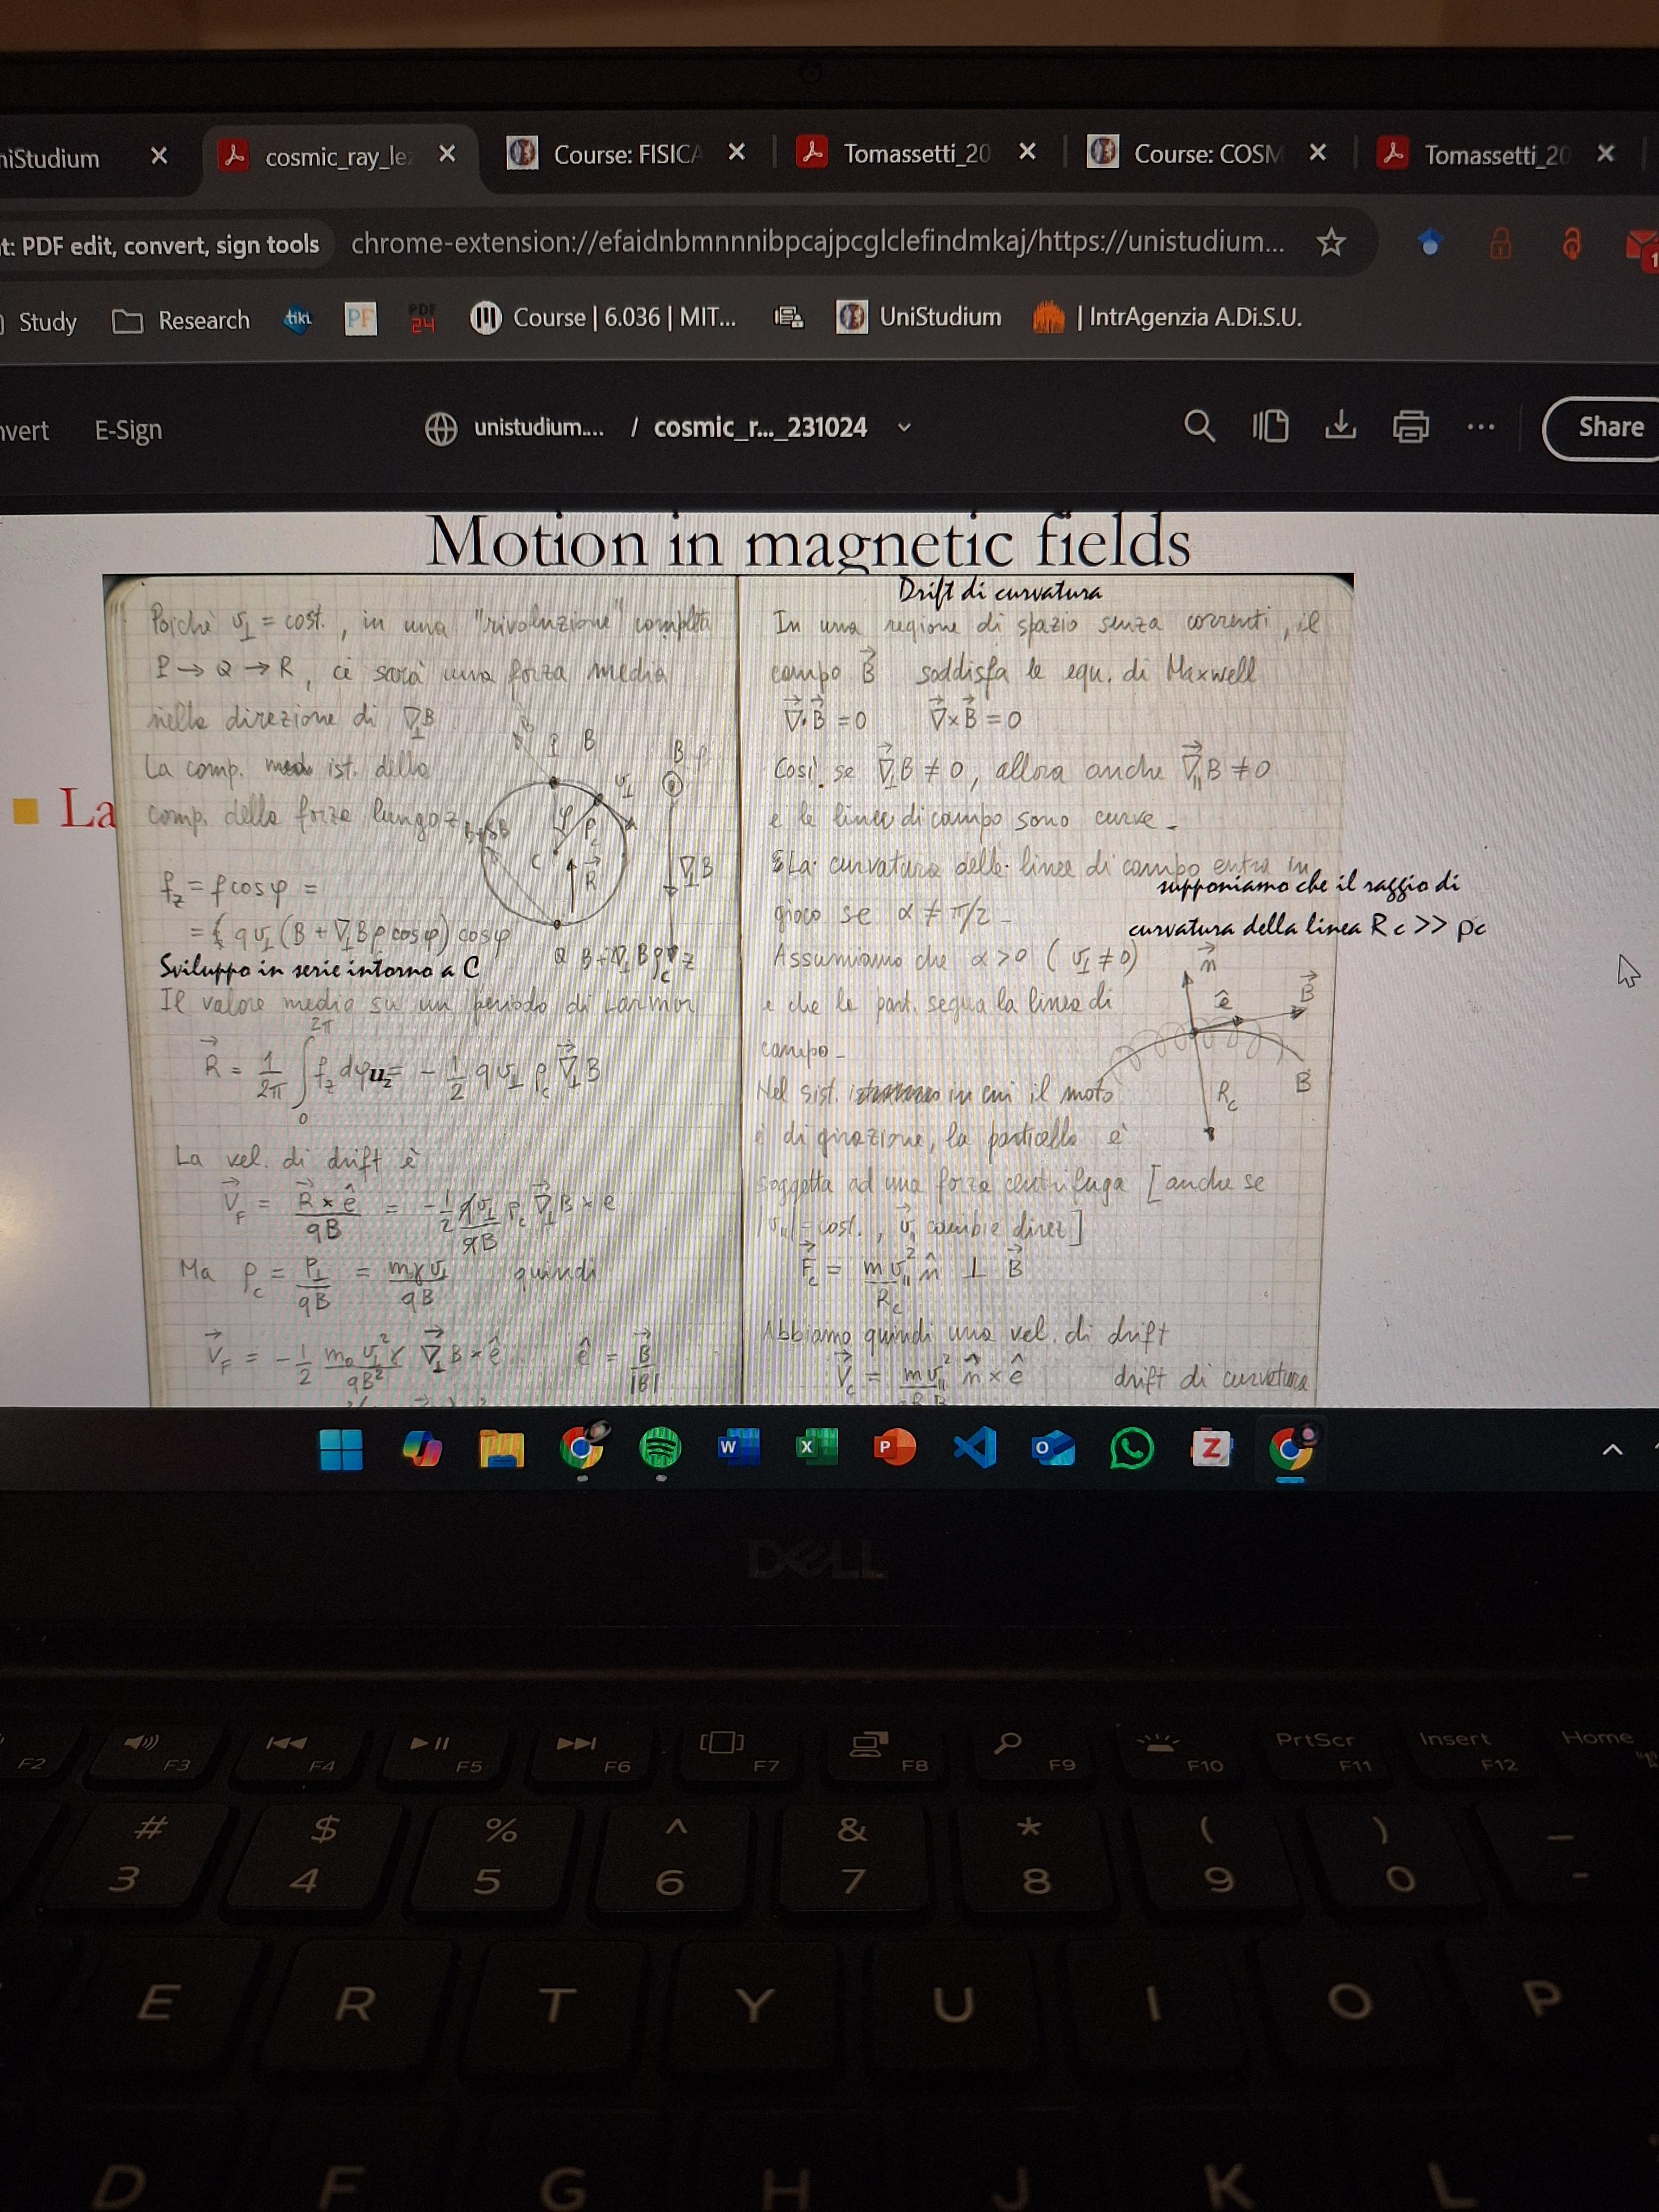 niStudium
cosmic_ray_le
Course: FISICA
Tomassetti_20
Course: COSM
Tomassetti_20
t: PDF edit, convert, sign tools
chrome-extension://efaidnbmnnnibpcajpcglclefindmkaj/https://unistudium...
1
Study
Research
tiki
PF
PDF 24
Course | 6.036 | MIT...
UniStudium
| IntrAgenzia A.Di.S.U.
nvert
E-Sign
unistudium.... / cosmic_r..._231024
Share
Motion in magnetic fields
La
Poichè v⊥ = cost., in una "rivoluzione" completa
P → Q → R, ci sarà una forza media
nella direzione di ∇⊥B
La comp. ist. della
comp. della forza lungo z
f_z = f cosφ =
= q v⊥ (B + ∇⊥B ρ cosφ) cosφ
Sviluppo in serie intorno a C
P B
B
v⊥
φ
ρc
B+δB
C
R⃗
∇⊥B
Q
z
Il valore medio su un periodo di Larmor
R⃗ = 1/2π ∫₀^2π f_z dφ u_z = - 1/2 q v⊥ ρc ∇⃗⊥B
La vel. di drift è
V⃗_F = R⃗ × ê / qB = - 1/2 q v⊥ / qB ρc ∇⃗⊥B × e
Ma ρc = P⊥ / qB = m₀γv⊥ / qB quindi
V⃗_F = - 1/2 m₀ v⊥² γ / qB² ∇⃗⊥B × ê ê = B⃗ / |B|
Drift di curvatura
In una regione di spazio senza correnti, il
campo B⃗ soddisfa le equ. di Maxwell
∇⃗·B⃗ = 0 ∇⃗×B⃗ = 0
Così, se ∇⃗⊥B ≠ 0, allora anche ∇⃗∥B ≠ 0
e le linee di campo sono curve -
La curvatura delle linee di campo entra in
supponiamo che il raggio di
gioco se α ≠ π/2 -
curvatura della linea Rc >> ρc
Assumiamo che α > 0 ( v⊥ ≠ 0)
e che la part. segua la linea di
campo -
n⃗
ê
B⃗
B
Rc
Nel sist. in cui il moto
è di girazione, la particella è
soggetta ad una forza centrifuga [anche se
|v∥| = cost., v⃗∥ cambia direz]
F⃗c = m v∥² / Rc n̂ ⊥ B⃗
Abbiamo quindi una vel. di drift
V⃗c = m v∥² n̂ × ê drift di curvatura
W
X
P
O
Z
DELL
F2
F3
F4
F5
F6
F7
F8
F9
PrtScr
Insert
Home
F10
F11
F12
# $ % ^ & * ( ) _
3 4 5 6 7 8 9 0 -
E R T Y U I O P
D F G H J K L